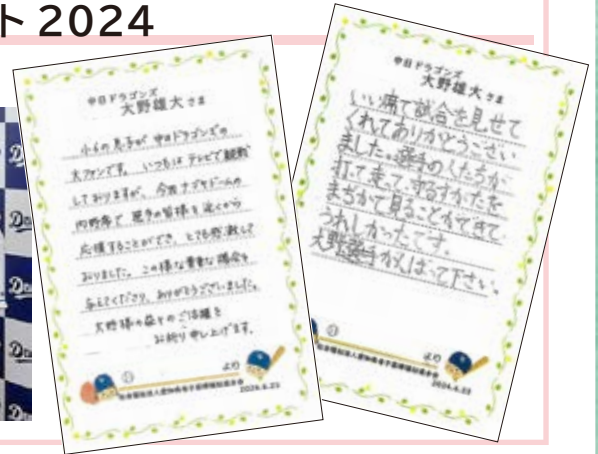 ト2024
中日ドラゴンズ
大野雄大さま
小6の息子が中日ドラゴンズの
大ファンです。いつもはテレビで観戦
しておりますが、今回ナゴヤドームの
内野席で選手の皆様を近くから
応援することができ、とても感激して
おりました。この様な貴重な機会を
与えてくださり、ありがとうございました。
大野様の益々のご活躍を
お祈り申し上げます。
より
社会福祉法人愛知県母子寡婦福祉連合会
2024.6.23
中日ドラゴンズ
大野雄大さま
いい席で試合を見せて
くれてありがとうござい
ました。選手の人たちが
打って走って、するすがたを
まぢかで見ることができて
うれしかったです。
大野選手がんばって下さい。
より
社会福祉法人愛知県母子寡婦福祉連合会
2024.6.23